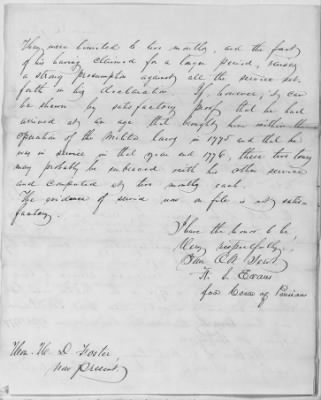 They were limited to two months, and the fact
of his having claimed for a longer period, raises
a strong presumption against all the service set
forth in his declaration. If, however, it can
be shown by satisfactory proof that he had
arrived at an age that brought him within the
operation of the Militia laws in 1775 and that he
was in service in that year and 1776, these two tours
may probably be embraced with his other service
and computed at two months each.
The evidence of service now on file is not satis-
factory.
I have the honor to be,
Very respectfully,
Your
H. C. Evans
for Comr of Pensions
Hon. H. D. Foster,
now present.